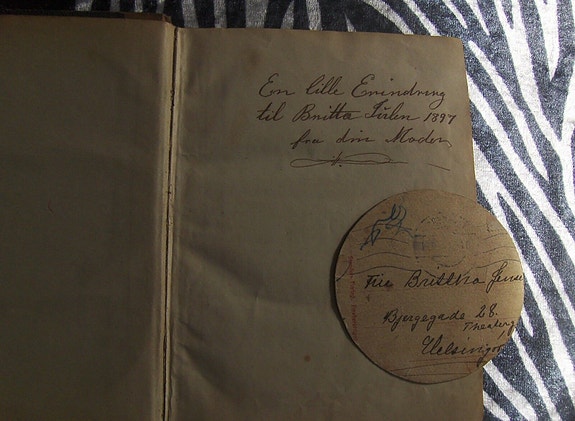 En lille Erindring
til Britta Julen 1897
fra din Moder
Frue Brittha Jense
Bjergegade 28.
Theaterg
Helsingør